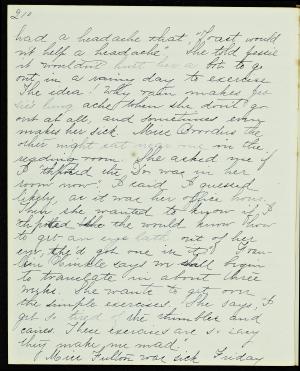 210
had a headache that "Toast would
n't help a headache". She told Jessie
it wouldn't hurt her a bit to go
out in a rainy day to exercise
The idea! Why rain makes Jes
sie's lung ache when she don't go
out at all, and sometimes even
makes her sick. Miss the
other night sat near one in the
reading room. She asked me if
I the Dr. was in her
room now". I said I guessed
likely, as it was her office hour.
Then she wanted to know if I
she would know how
to get an eye lash out of her
eye, she'd got one in it.
says we shall begin
to translate in about three
weeks. She wants to get over
the simple exercises, She says, I
get so tired of the thimbles and
canes. These exercises are so easy
they make me mad".
Miss Fulton was sick Friday